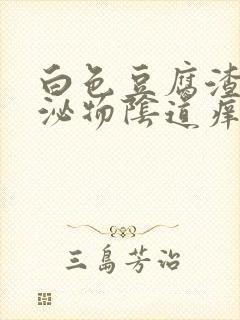 白色豆腐渣
泌物陰道痒
三島芳治